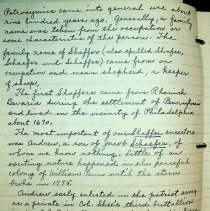 Patronymics came into general use about
nine hundred years ago. Generally, a family
name was taken from the occupation or
some characteristic of the person. The
family name of Shaffers (also spelled Shafer,
Schaefer and Schaffer) came from an
occupation and means shepherd, a keeper
of sheep.
The first Shaffers came from Rhenish
Bavaria during the settlement of Pennsylvania
and lived in the vicinity of Philadelphia
about 1690.
The most important of our Shaffer ancestors
was Andrew, a son of Jacob Schaefer, of
whom we know nothing. Little of an
exciting nature happened in the peaceful
colony of William Penn until the storm
broke in 1775.
Andrew enlisted in the patriot army
as a private in Col. Shee's third battalion